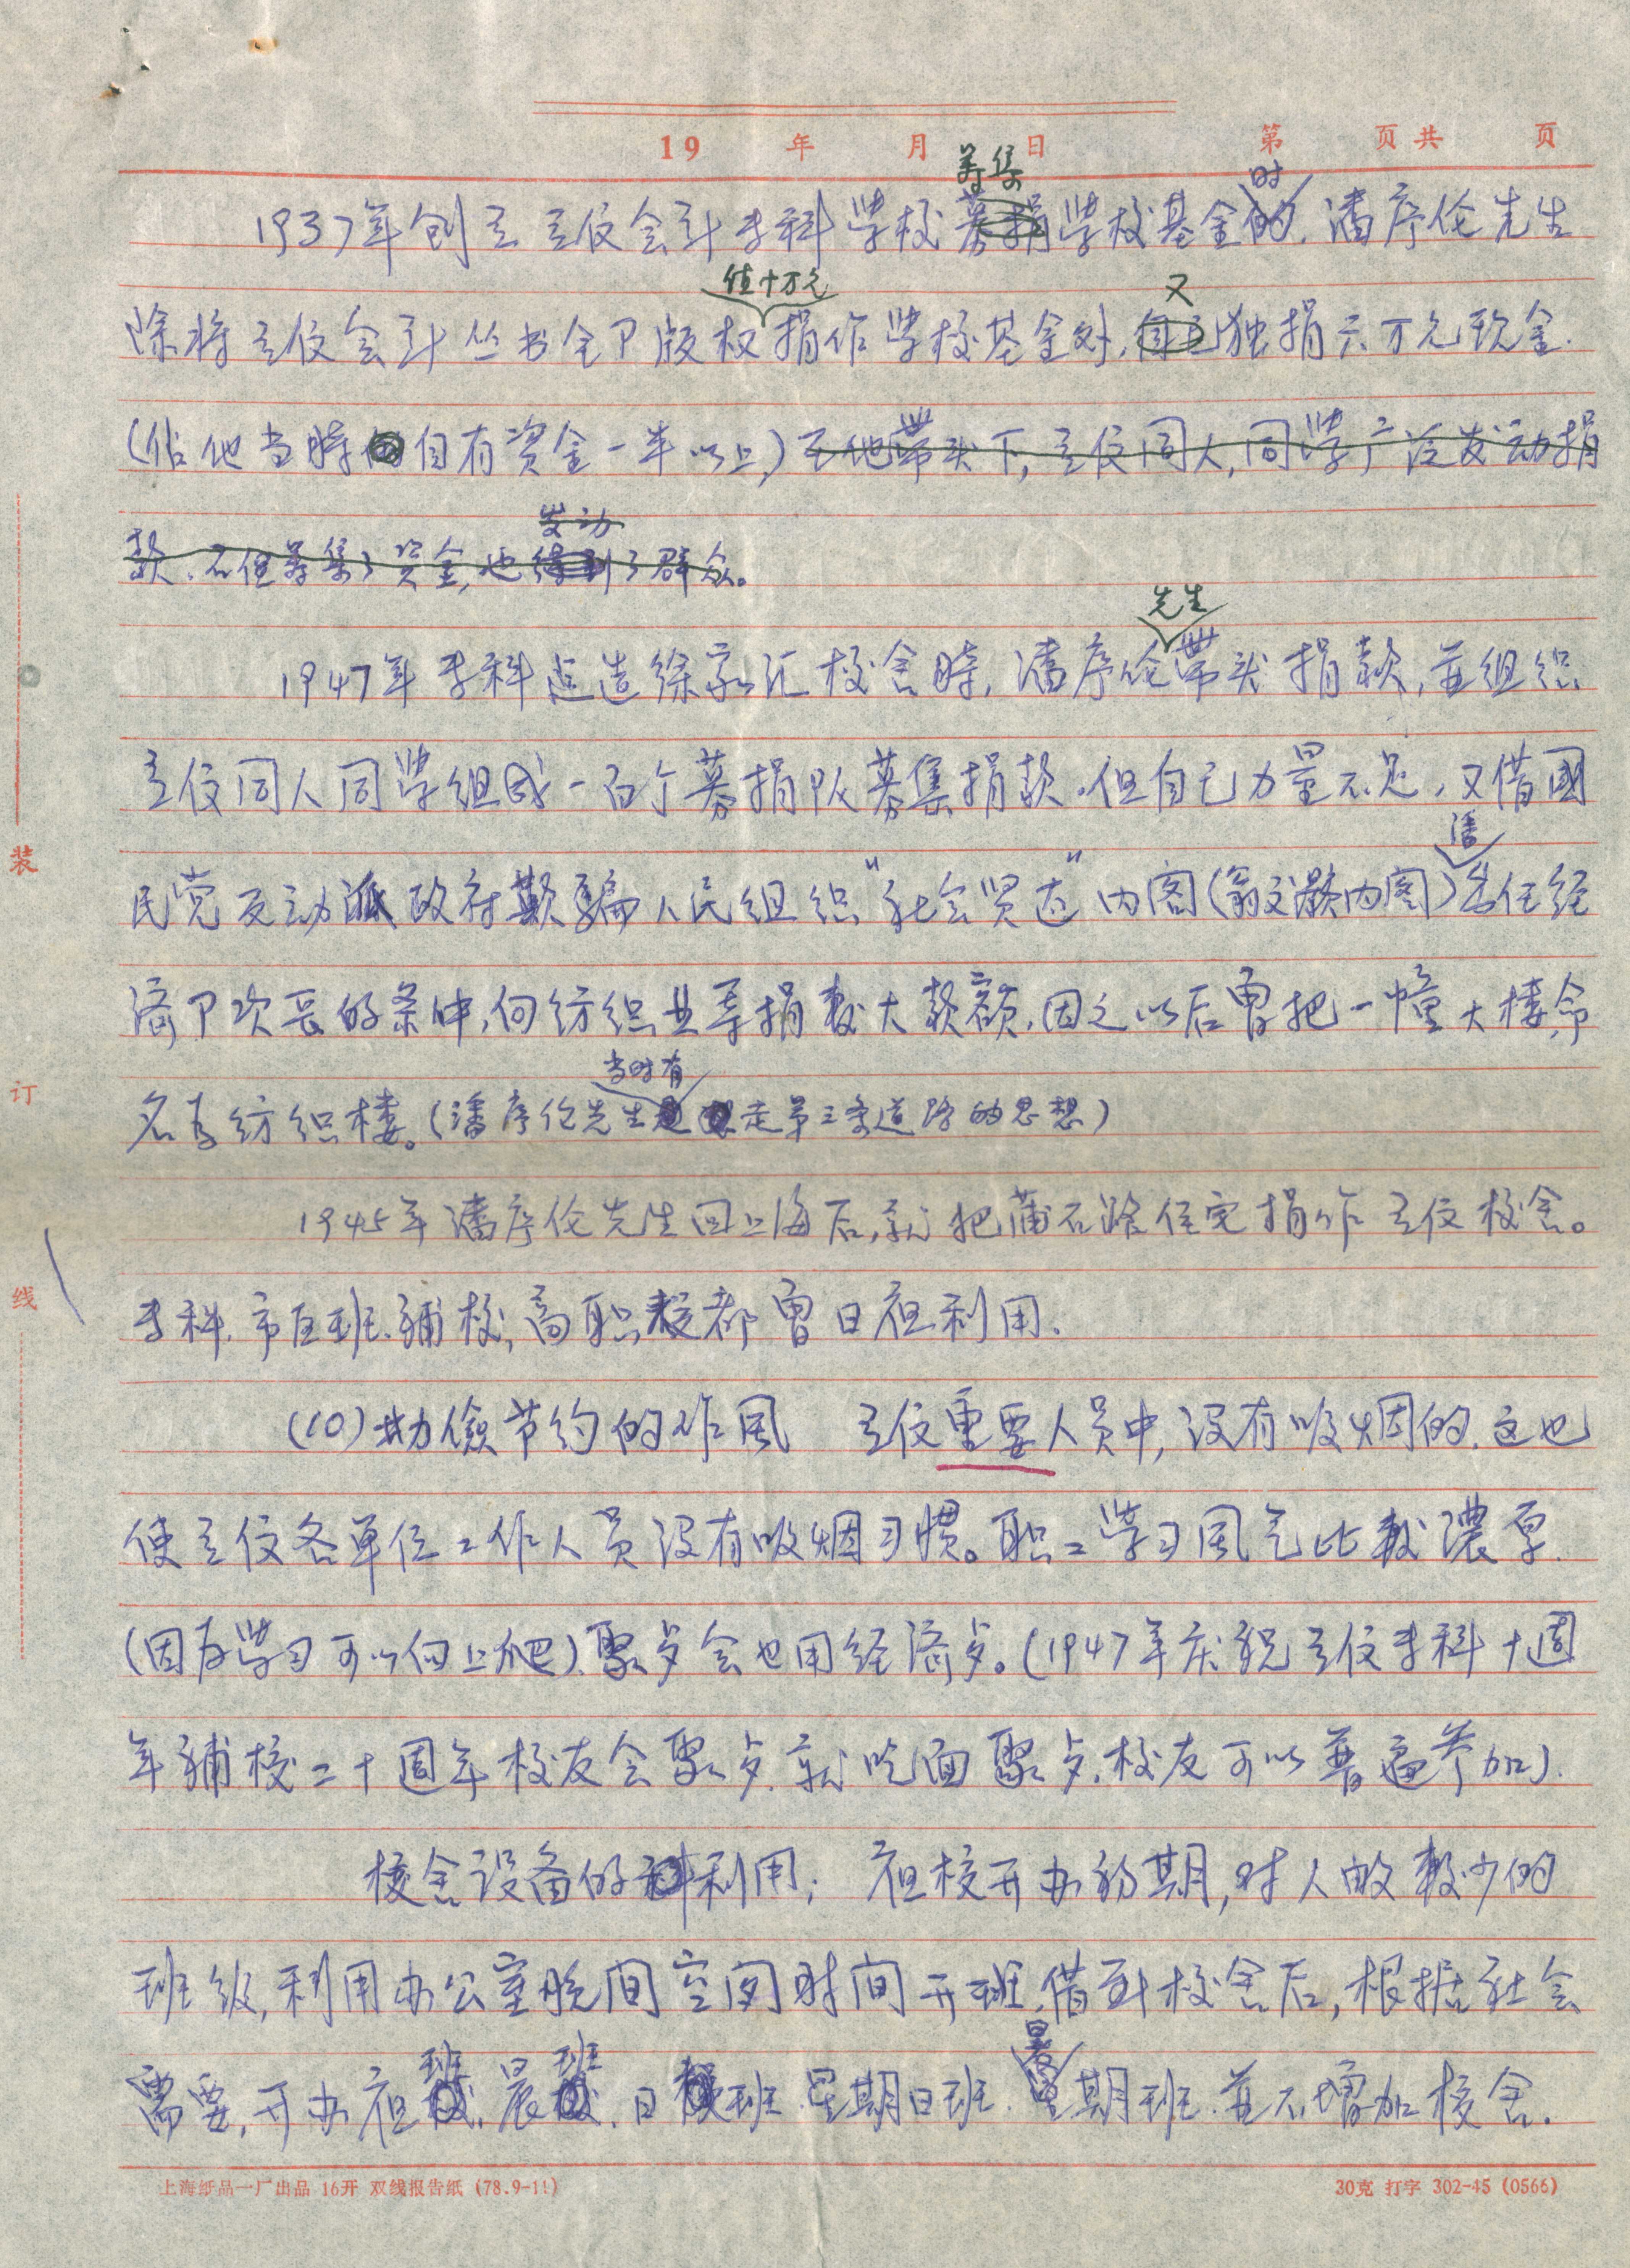 19 年 月 日 第 页共 页
筹集 时
1937年创立立信会计专科学校募捐学校基金的，潘序伦先生
值十万元 又
除将立信会计丛书全卩版权捐作学校基金外，自己独捐六万元现金．
（佔他当時的自有资金一半以上）在他带头下，立信同人，同学广泛发动捐
发动
款，不但筹集了资金，也得到了群众。
先生
1947年专科建造徐家汇校舍時，潘序伦带头捐款，並组织
立信同人同学组成一百个募捐队募集捐款．但自己力量不足，又借國
潘
民党反动派政府欺騙人民组织“社会贤达”内阁（翁文灏内阁）出任经
济卩次長的条件，向纺织业等捐较大款额，因之以后曾把一幢大楼命
当时有
名为纺织楼。（潘序伦先生走第三条道路的思想）
1945年潘序伦先生回上海后，就把蒲石路住宅捐作立信校舍。
专科．市区班．补校，高职校都曾日夜利用．
(10)勤儉节约的作風 立信重要人员中，没有吸烟的．这也
使立信各单位工作人员没有吸烟习惯。职工学习風气比較濃厚．
（因为学习可以向上爬）．聚歺会也用经济歺。（1947年庆祝立信专科十週
年補校二十週年校友会聚歺．就吃面聚歺．校友可以普遍参加）．
校舍设备的利用； 夜校开办初期，对人数較少的
班级，利用办公室晚间空闲时间开班．借到校舍后，根据社会
班 班 暑
需要，开办夜校．晨校．日班．星期日班．星期班．並不增加校舍．
装
订
线
上海纸品一厂出品 16开 双线报告纸 (78.9-11) 30克 打字 302-45 (0566)